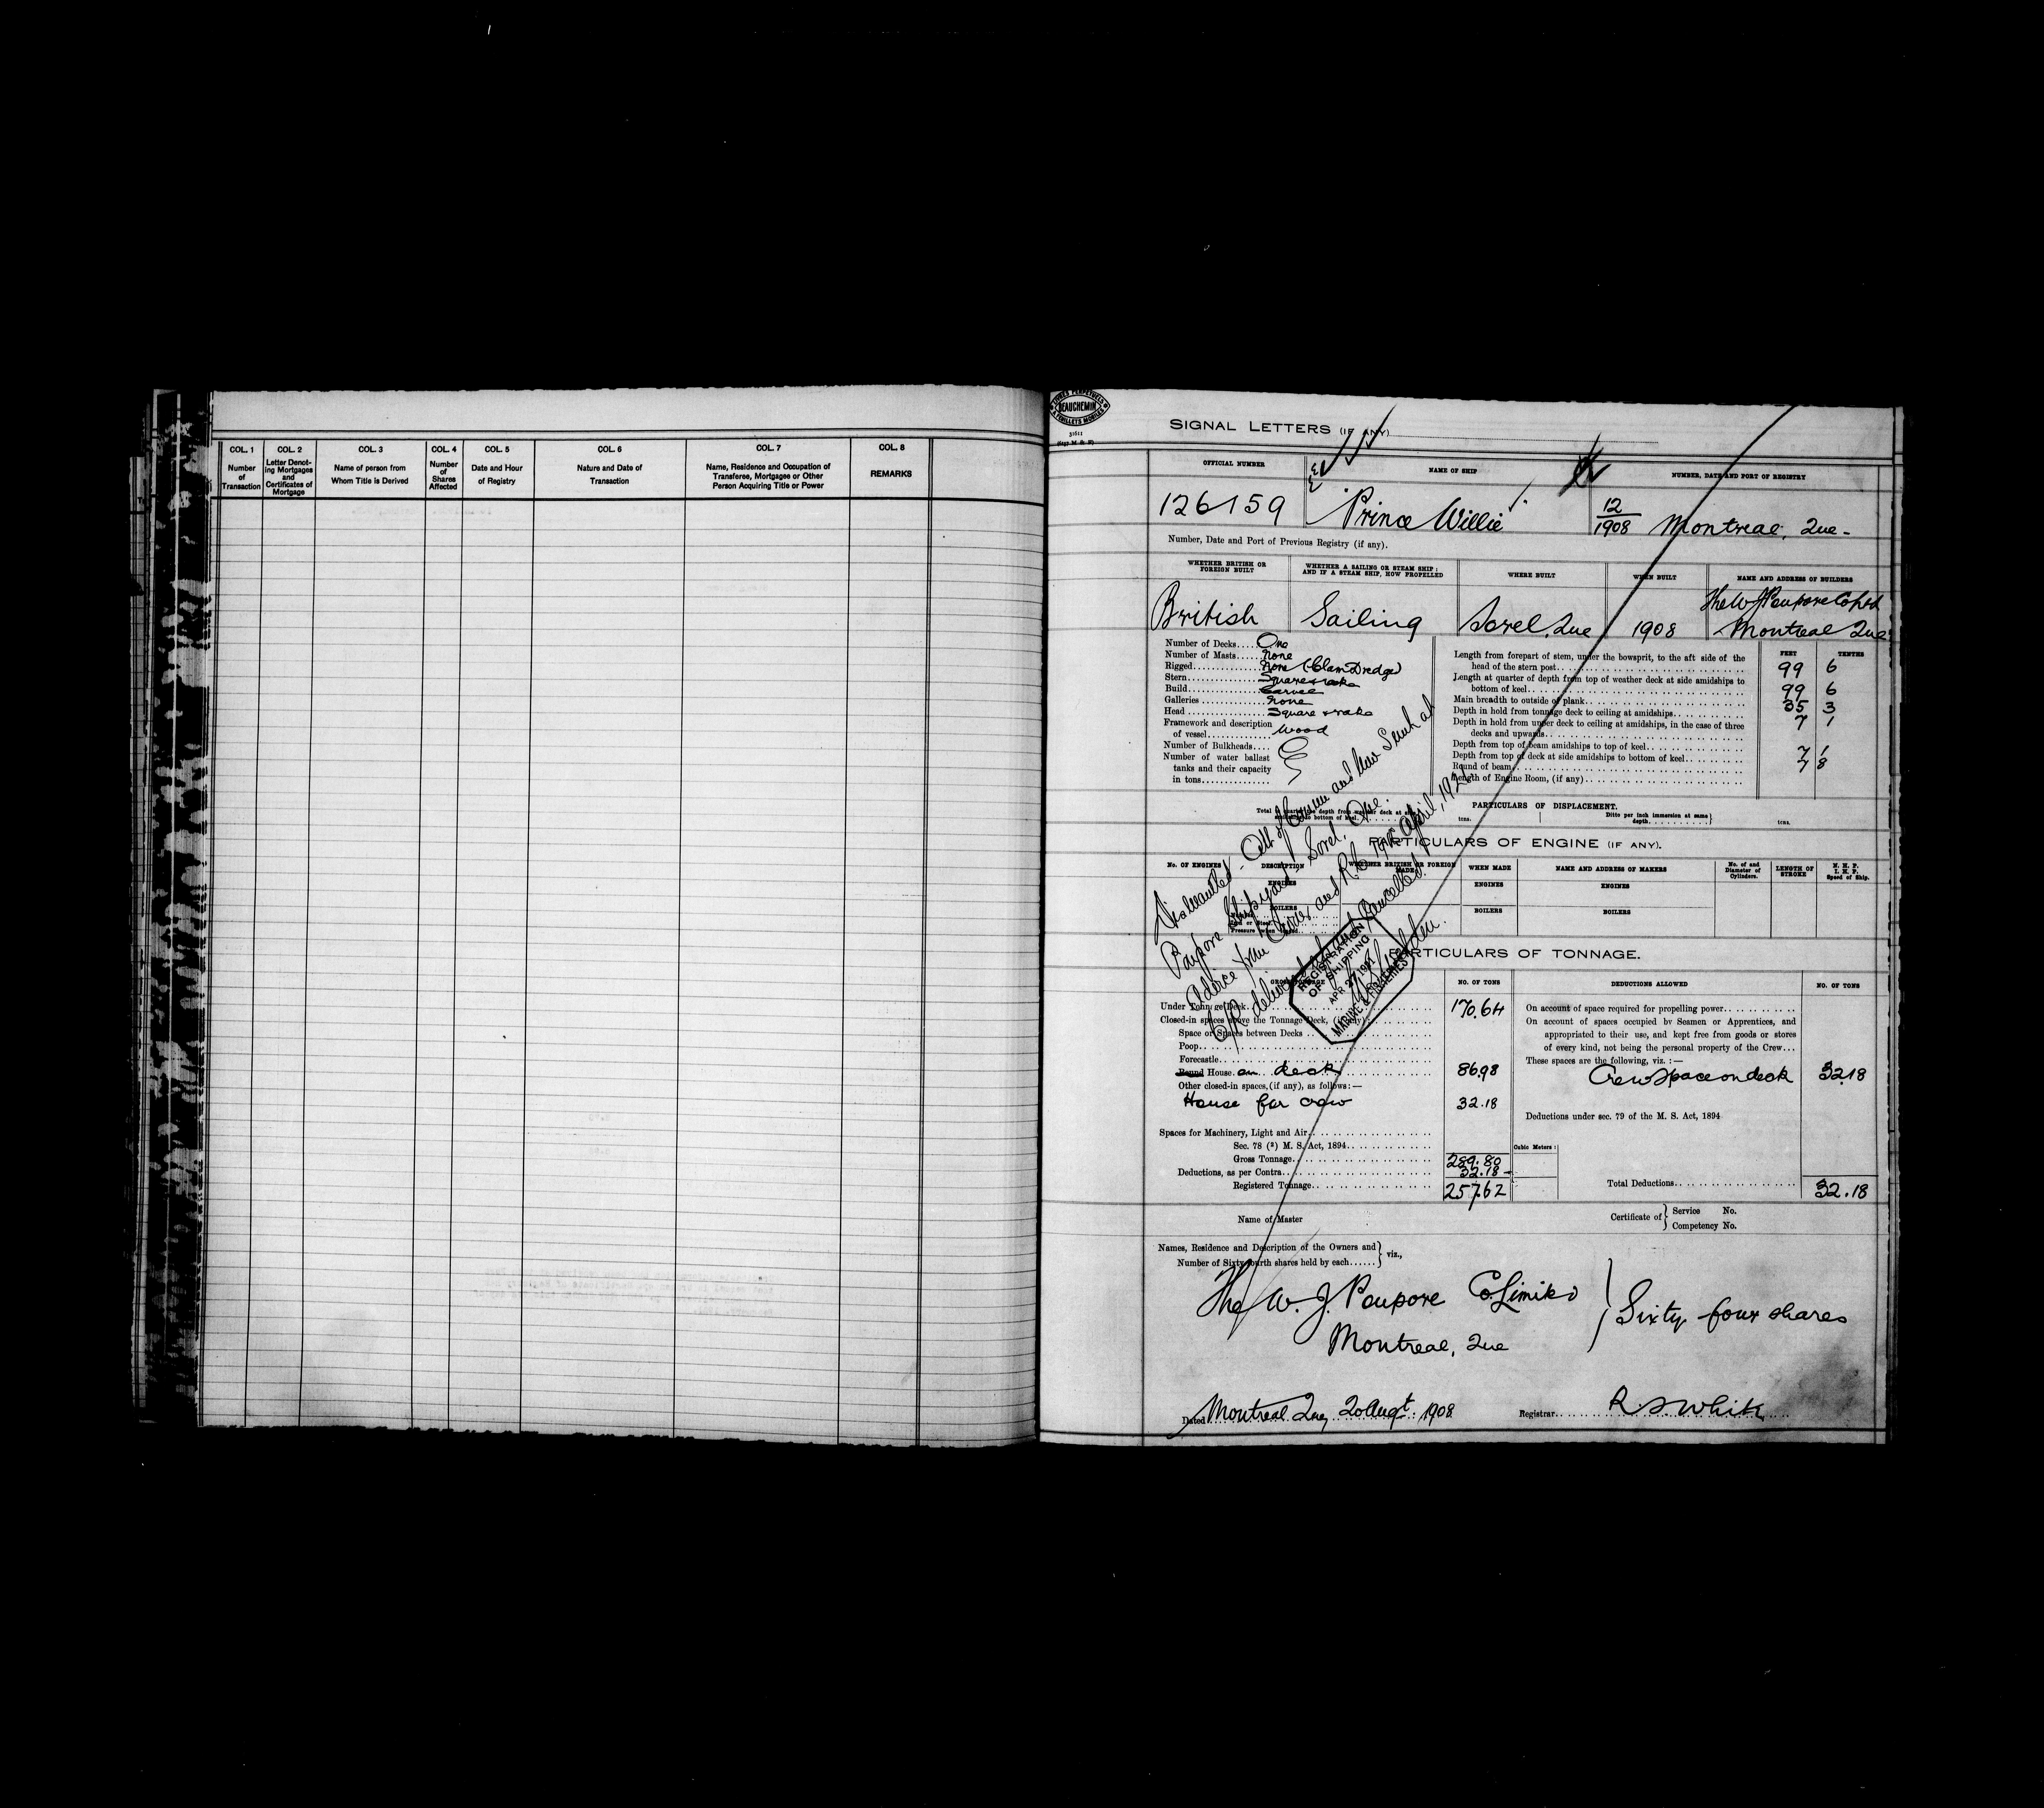 COL. 1
Number
of
Transaction
COL. 2
Letter Denot-
ing Mortgages
and
Certificates of
Mortgage
COL. 3
Name of person from
Whom Title is Derived
COL. 4
Number
of
Shares
Affected
COL. 5
Date and Hour
of Registry
COL. 6
Nature and Date of
Transaction
COL. 7
Name, Residence and Occupation of
Transferee, Mortgagee or Other
Person Acquiring Title or Power
COL. 8
REMARKS
LIVRES PERPETUELS
BEAUCHEMIN
& FEUILLETS MOBILES
51611
SIGNAL LETTERS (IF ANY)
OFFICIAL NUMBER
NAME OF SHIP
NUMBER, DATE AND PORT OF REGISTRY
126159
"Prince Willie"
12
1908 Montreal, Que-
Number, Date and Port of Previous Registry (if any).
WHETHER BRITISH OR
FOREIGN BUILT
WHETHER A SAILING OR STEAM SHIP;
AND IF A STEAM SHIP, HOW PROPELLED
WHERE BUILT
WHEN BUILT
NAME AND ADDRESS OF BUILDERS
British
Sailing
Sorel, Que
1908
The W J Poupore Co Ltd
Montreal Que
Number of Decks.... One
Number of Masts..... None
Rigged............. None (Clam Dredge)
Stern............. Square & rake
Build............. Carvel
Galleries............ None
Head............. Square & rake
Framework and description
of vessel............ Wood
Number of Bulkheads....
Number of water ballast
tanks and their capacity
in tons..............
FEET
TENTHS
Length from forepart of stem, under the bowsprit, to the aft side of the
head of the stern post........ 99 6
Length at quarter of depth from top of weather deck at side amidships to
bottom of keel........ 99 6
Main breadth to outside of plank........ 35 3
Depth in hold from tonnage deck to ceiling at amidships........ 7 1
Depth in hold from upper deck to ceiling at amidships, in the case of three
decks and upwards........
Depth from top of beam amidships to top of keel........ 7 1
Depth from top of deck at side amidships to bottom of keel........ 7 8
Round of beam........
Length of Engine Room, (if any)........
PARTICULARS OF DISPLACEMENT.
Total to quarter the depth from weather deck at side
amidships to bottom of keel........ tons.
Ditto per inch immersion at same
depth........ tons.
Dismantled - Out of Commn and now Sunk at
Poupore Shipyard, Sorel, Que.
Advice from Owners and R. S. 19th April, 1921
C/R delivered up and Cancelled.
PARTICULARS OF ENGINE (IF ANY).
No. OF ENGINES
DESCRIPTION
WHETHER BRITISH OR FOREIGN
MADE
WHEN MADE
NAME AND ADDRESS OF MAKERS
No. of and
Diameter of
Cylinders.
LENGTH OF
STROKE
N. H. P.
I. H. P.
Speed of Ship.
ENGINES
ENGINES
ENGINES
BOILERS
BOILERS
BOILERS
REGISTRATION
OF SHIPPING
APR 27 1921
MARINE & FISHERIES
PARTICULARS OF TONNAGE.
GROSS TONNAGE
NO. OF TONS
DEDUCTIONS ALLOWED
NO. OF TONS
Under Tonnage Deck........ 170.64
Closed-in spaces above the Tonnage Deck, (if any):
Space or Spaces between Decks........
Poop........
Forecastle........
Round House on deck 86.98
Other closed-in spaces, (if any), as follows:—
House for crew 32.18
Spaces for Machinery, Light and Air........
Sec. 78 (2) M. S. Act, 1894........
Gross Tonnage........ 289.80
Deductions, as per Contra........ 32.18-
Registered Tonnage........ 257.62
On account of space required for propelling power............
On account of spaces occupied by Seamen or Apprentices, and
appropriated to their use, and kept free from goods or stores
of every kind, not being the personal property of the Crew...
These spaces are the following, viz. :—
Crew space on deck 32.18
Deductions under sec. 79 of the M. S. Act, 1894
Cubic Meters :
Total Deductions........ 32.18
Name of Master
Certificate of
Service No.
Competency No.
Names, Residence and Description of the Owners and
Number of Sixty-fourth shares held by each......
viz.,
The W. J. Poupore Co. Limited
Montreal, Que
Sixty four shares
Dated Montreal Que, 20 Augt. 1908
Registrar R. S White